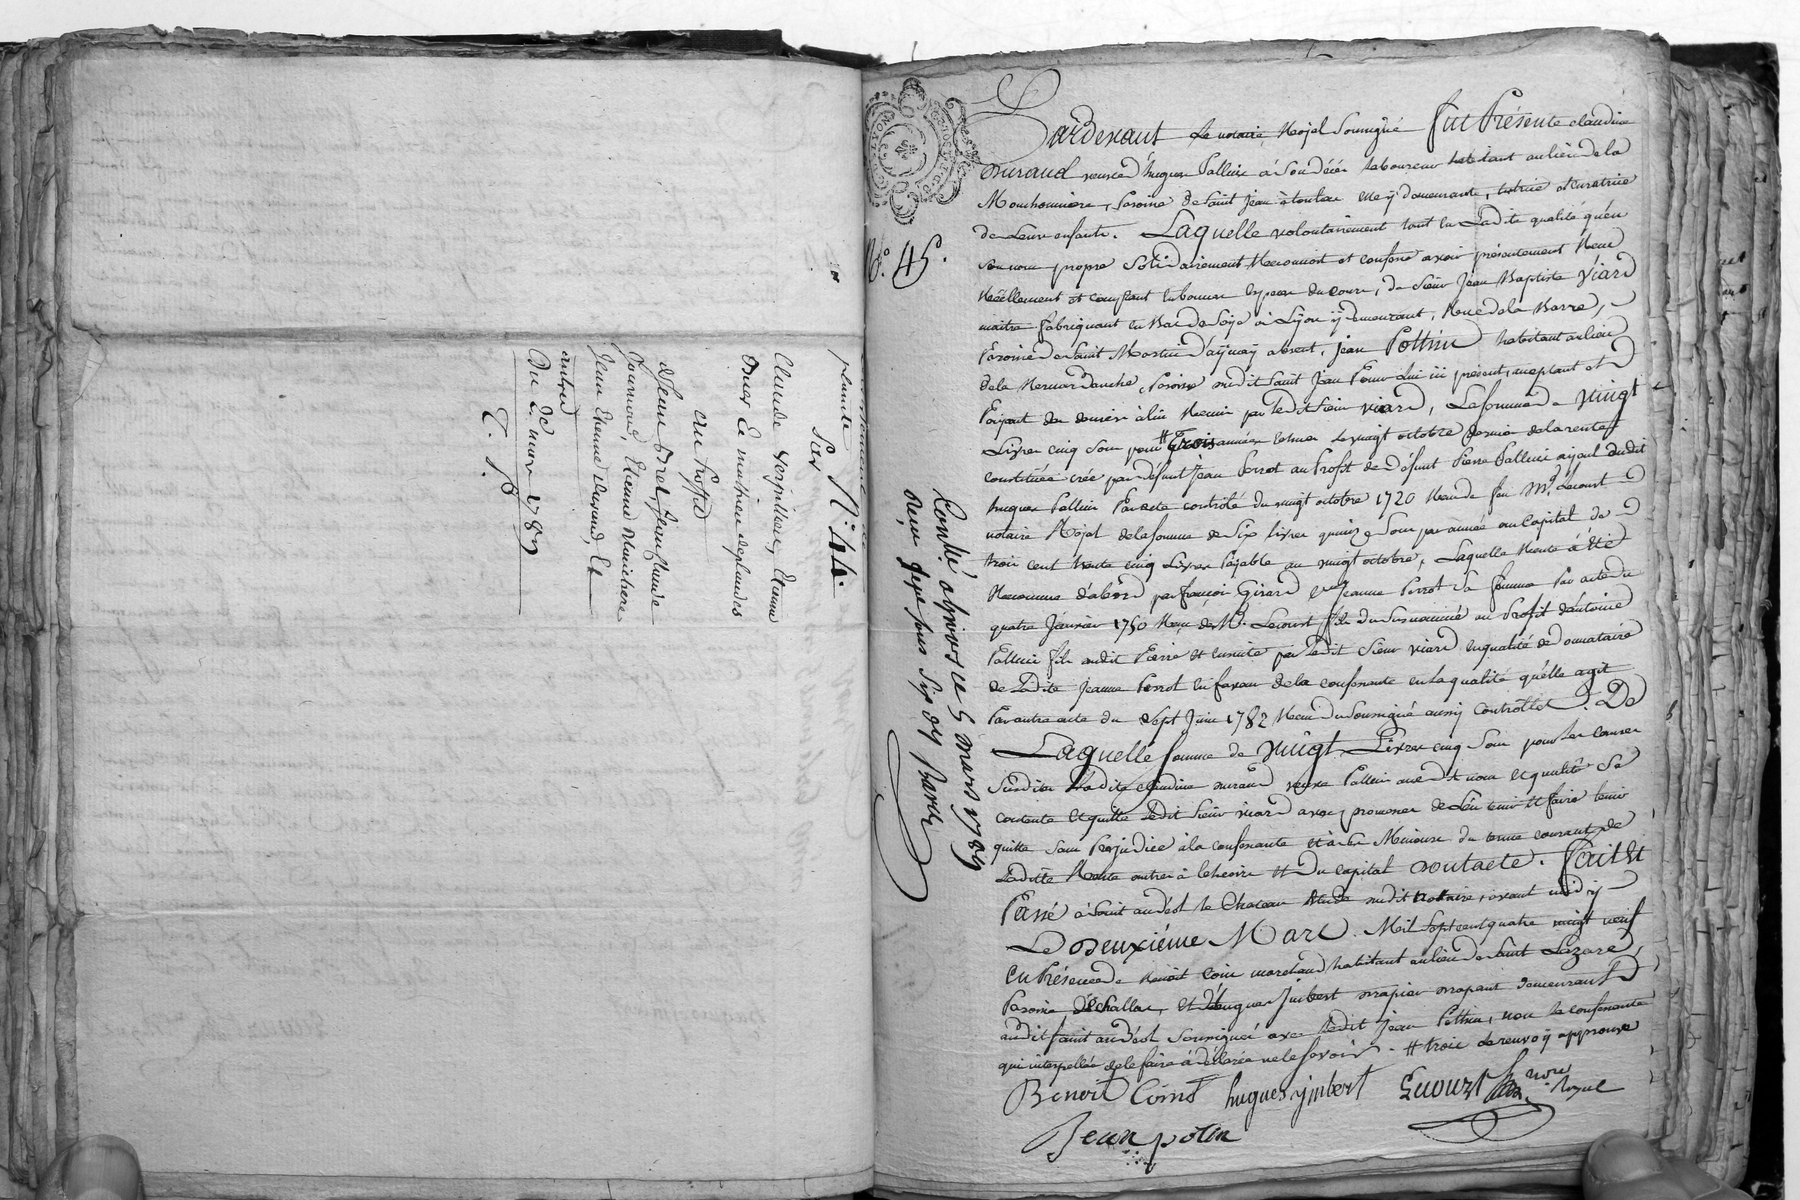 plainte
Sur N.º 44.
Claude Serpilleau, Etienne
au Proffid
Jean Etienne Durand, Et
autres
Du 2.e mars 1789
N.º 45.
Controlé a givors ce 5 mars 1789
Reçu quinze sous six d.
Pardevant Le notaire Royal Soussigné fut Présente claudine
Durand veuve d'hugues Pallluis à son décès Laboureur habitant au lieu de la
Mouchonniere, Paroisse de Saint Jean à toulas elle y demeurante, tutrice et curatrice
de Leurs enfants. Laquelle volontairement tant en Ladite qualité qu'en
son nom propre Solidairement Reconnoit et confesse avoir présentement Receu
Réellement et comptant en bonnes especes du cours, de Sieur Jean Baptiste Viard
maitre fabriquant en Bas de Soye à Lyon y demeurant, Rue de la Barre,
Paroisse de Saint Martin d'aynay absent, Jean Pottin habitant au lieu
de la Paroisse sudit Saint Jean Pour Lui ici présent, acceptant et
Payant des deniers à lui Remis par Ledit Sieur Viard, La somme de Vingt
Livres cinq Sous pour # Trois années echues Le vingt octobre dernier de la rente
constituée créé par défunt Jean Perrot au Profit de défunt Pierre Palluis ayeul dudit
hugues Palluis Par acte controlé du vingt octobre 1720 Receu de feu M.e Lecourt
notaire Royal de la somme de Six Livres quinze Sous par année au Capital de
trois cent trente cinq Livres Payable au vingt octobre, Laquelle Rente à été
Reconnue d'abord par françois Girard et Jeanne Perrot sa femme Par acte du
quatre Janvier 1750 Reçu de M.e Lecourt fils du susnommé au Profit d'antoine
Palluis fils audit Pierre et ensuite par Ledit Sieur Viard en qualité de donnataire
de Ladite Jeanne Perrot en faveur de la confessante en la qualité qu'elle agit
Par autre acte du Sept Juin 1782 Receu du Soussigné aussy Controllé. De
Laquelle somme de Vingt Livres cinq Sous pour les causes
Susdites Ladite claudine Durand veuve Palluis auxdits nom et qualité Se
contente et quitte Ledit Sieur Viard avec promesse de L'en tenir et faire tenir
quitte Sans Prejudice à la confessante et à ses Mineurs du terme courant de
Laditte Rente autres à echeoir et du capital dont acte. Fait et
Passé à Saint andéol le Chateau Etude dudit notaire, avant midy
Le Deuxiéme Mars Mil Sept cent quatre vingt neuf
En Présence de Benoit Coin marchand habitant au lieu de Saint Lazare,
Paroisse d'Echallas, et d'hugues Imbert drapier drapant demeurant
audit Saint andéol Soussignés avec Ledit Jean Pottin, non la confessante
qui interpellée de le faire à déclarée ne le savoir. # trois de renvoy approuvé
Benoit Coint hugues ymbert Lecourt no.re Royal
Jean potin